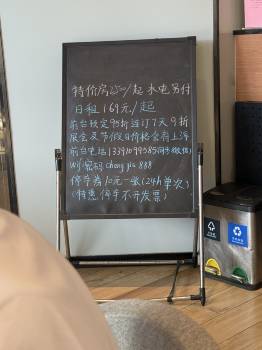 特价房2500/起 水电另付
日租169元/起
前台预定95折 连订7天9折
展会及节假日价格会有上浮
前台电话13391099585(同步微信)
wifi密码 chengjia888
停车券10元一张(24h单次)
(特惠停车不开发票)